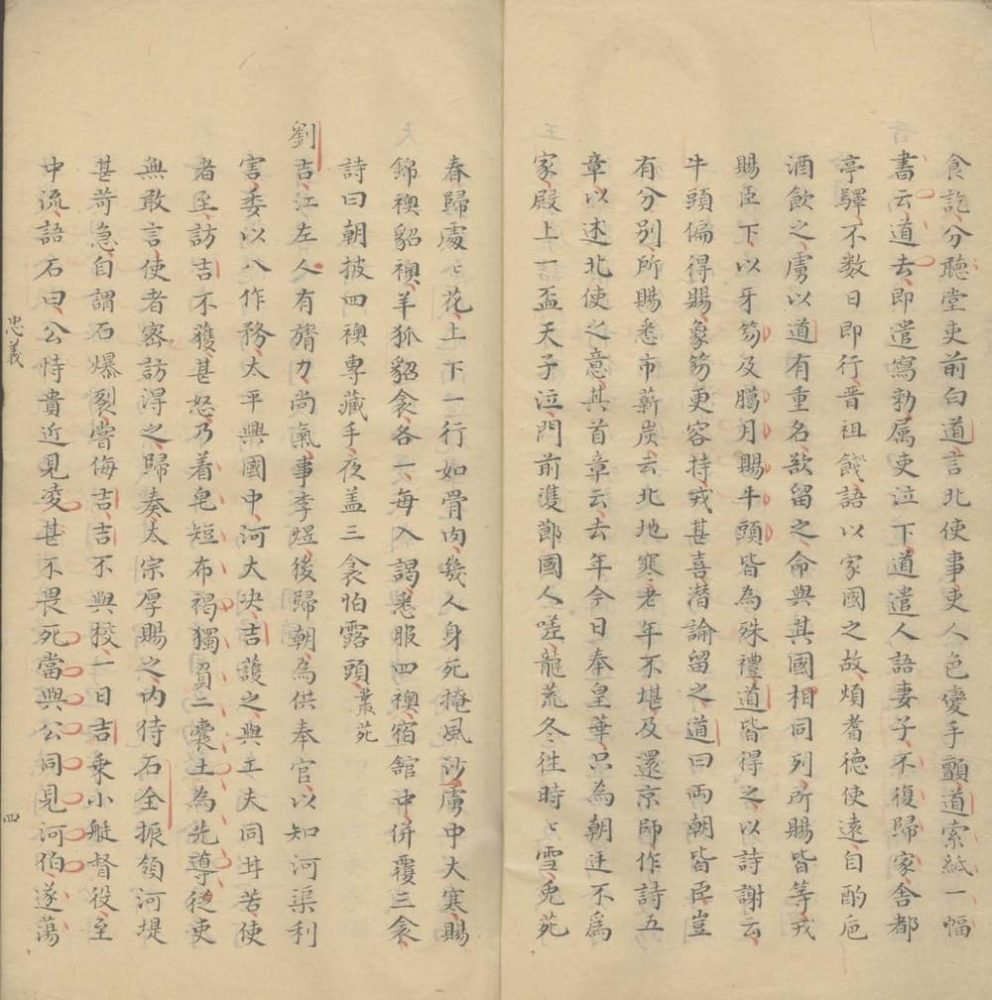 食訖分聽堂吏前白道言北使事吏人色變手顫道索紙一幅
書云道去即遣寫勅属吏泣下道遣人語妻子不復歸家舍都
亭驛不数日即行晋祖餞語以家國之故煩耆德使遠自酌巵
酒飲之虜以道有重名欲留之命與其國相同列所賜皆等戎
賜臣下以牙笏及臈月賜牛頭皆為殊禮道皆得之以詩謝云
牛頭偏得賜象笏更容持戎甚喜潜諭留之道曰两朝皆臣豈
有分别所賜悉市薪炭云北地寒老年不堪及還京師作詩五
章以述北使之意其首章云去年今日奉皇華只為朝廷不為
家殿上一盃天子泣門前䨇節國人嗟龍荒冬徃時〻雪兎苑
春歸處〻花上下一行如骨肉幾人身死掩風沙虜中大寒賜
錦襖貂襖羊狐貂衾各一每入謁悉服四襖宿舘中併覆三衾
詩曰朝披四襖專藏手夜盖三衾怕露頭叢苑
劉吉江左人有膂力尚氣事李煜後歸朝為供奉官以知河渠利
害委以八作務太平興國中河大决吉護之與工夫同甘苦使
者至訪吉不獲甚怒乃着皂短布褐獨負二囊土為先導徒吏
無敢言使者密訪得之歸奏太宗厚賜之内侍石全振領河堤
甚苛急自謂石爆裂嘗侮吉吉不與挍一日吉乗小艇督役至
中流語石曰公恃貴近見凌甚不畏死當與公同見河伯遂蕩
忠義
四